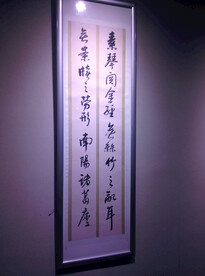 素琴閱金經無絲竹之亂耳
無案牘之勞形南陽諸葛廬